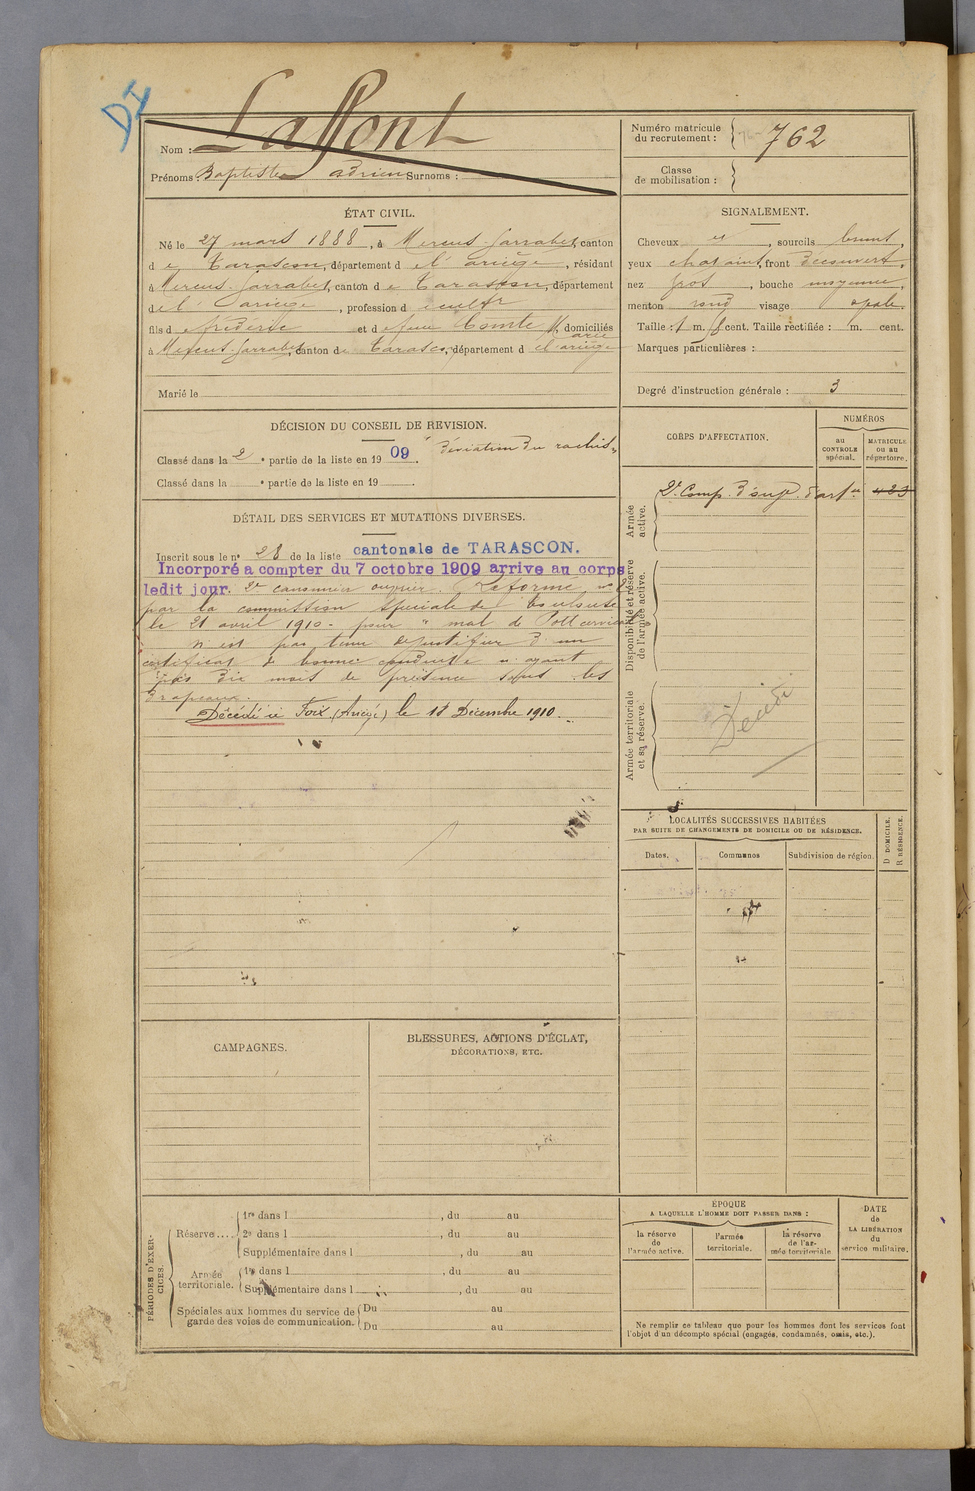 DI
Laffont
Nom :
Prénoms : Baptiste Adrien Surnoms :
Numéro matricule
du recrutement : 762
Classe
de mobilisation :
ÉTAT CIVIL.
Né le 27 mars 1888, à Mercus-Garrabet, canton
de Tarascon, département de l'ariège, résidant
à Mercus-Garrabet, canton de Tarascon, département
de l'ariège, profession d cultr
fils de frédéric et de feue Comte Marie domiciliés
à Mercus-Garrabet, canton de Tarascon, département de l'ariège
Marié le
SIGNALEMENT.
Cheveux et, sourcils bruns,
yeux chataint, front découvert,
nez gros, bouche moyenne,
menton rond visage ovale.
Taille : 1 m. cent. Taille rectifiée : m. cent.
Marques particulières :
Degré d'instruction générale : 3
DÉCISION DU CONSEIL DE REVISION.
Classé dans la 2e partie de la liste en 1909. "Déviation du rachis"
Classé dans la e partie de la liste en 19 .
DÉTAIL DES SERVICES ET MUTATIONS DIVERSES.
Inscrit sous le n° 28 de la liste cantonale de TARASCON.
Incorporé a compter du 7 octobre 1909 arrive au corps
ledit jour. 2e canonnier ouvrier. Réformé n° 2
par la commission spéciale de Toulouse
le 21 avril 1910 - pour "mal de Pott cervical"
n'est pas tenu de justifier d'un
certificat de bonne conduite n'ayant
pas dix mois de présence sous les
drapeaux.
Décédé à Foix (Ariège) le 18 Décembre 1910.
CORPS D'AFFECTATION.
NUMÉROS
au
CONTROLE
spécial.
MATRICULE
ou au
répertoire.
Armée
active.
2e Comp. d'ouv. d'artie 423
Disponibilité et réserve
de l'armée active.
Armée territoriale
et sa réserve.
Décédé
LOCALITÉS SUCCESSIVES HABITÉES
PAR SUITE DE CHANGEMENTS DE DOMICILE OU DE RÉSIDENCE.
Dates.
Communes
Subdivision de région.
D DOMICILE.
R RÉSIDENCE.
CAMPAGNES.
BLESSURES, ACTIONS D'ÉCLAT,
DÉCORATIONS, ETC.
PÉRIODES D'EXER-
CICES.
Réserve....
1re dans l , du au
2e dans l , du au
Supplémentaire dans l , du au
Armée
territoriale.
1re dans l , du au
Supplémentaire dans l , du au
Spéciales aux hommes du service de
garde des voies de communication.
Du au
Du au
ÉPOQUE
A LAQUELLE L'HOMME DOIT PASSER DANS :
la réserve
de
l'armée active.
l'armée
territoriale.
la réserve
de l'ar-
mée territoriale
DATE
de
LA LIBÉRATION
du
service militaire.
Ne remplir ce tableau que pour les hommes dont les services font
l'objet d'un décompte spécial (engagés, condamnés, omis, etc.).